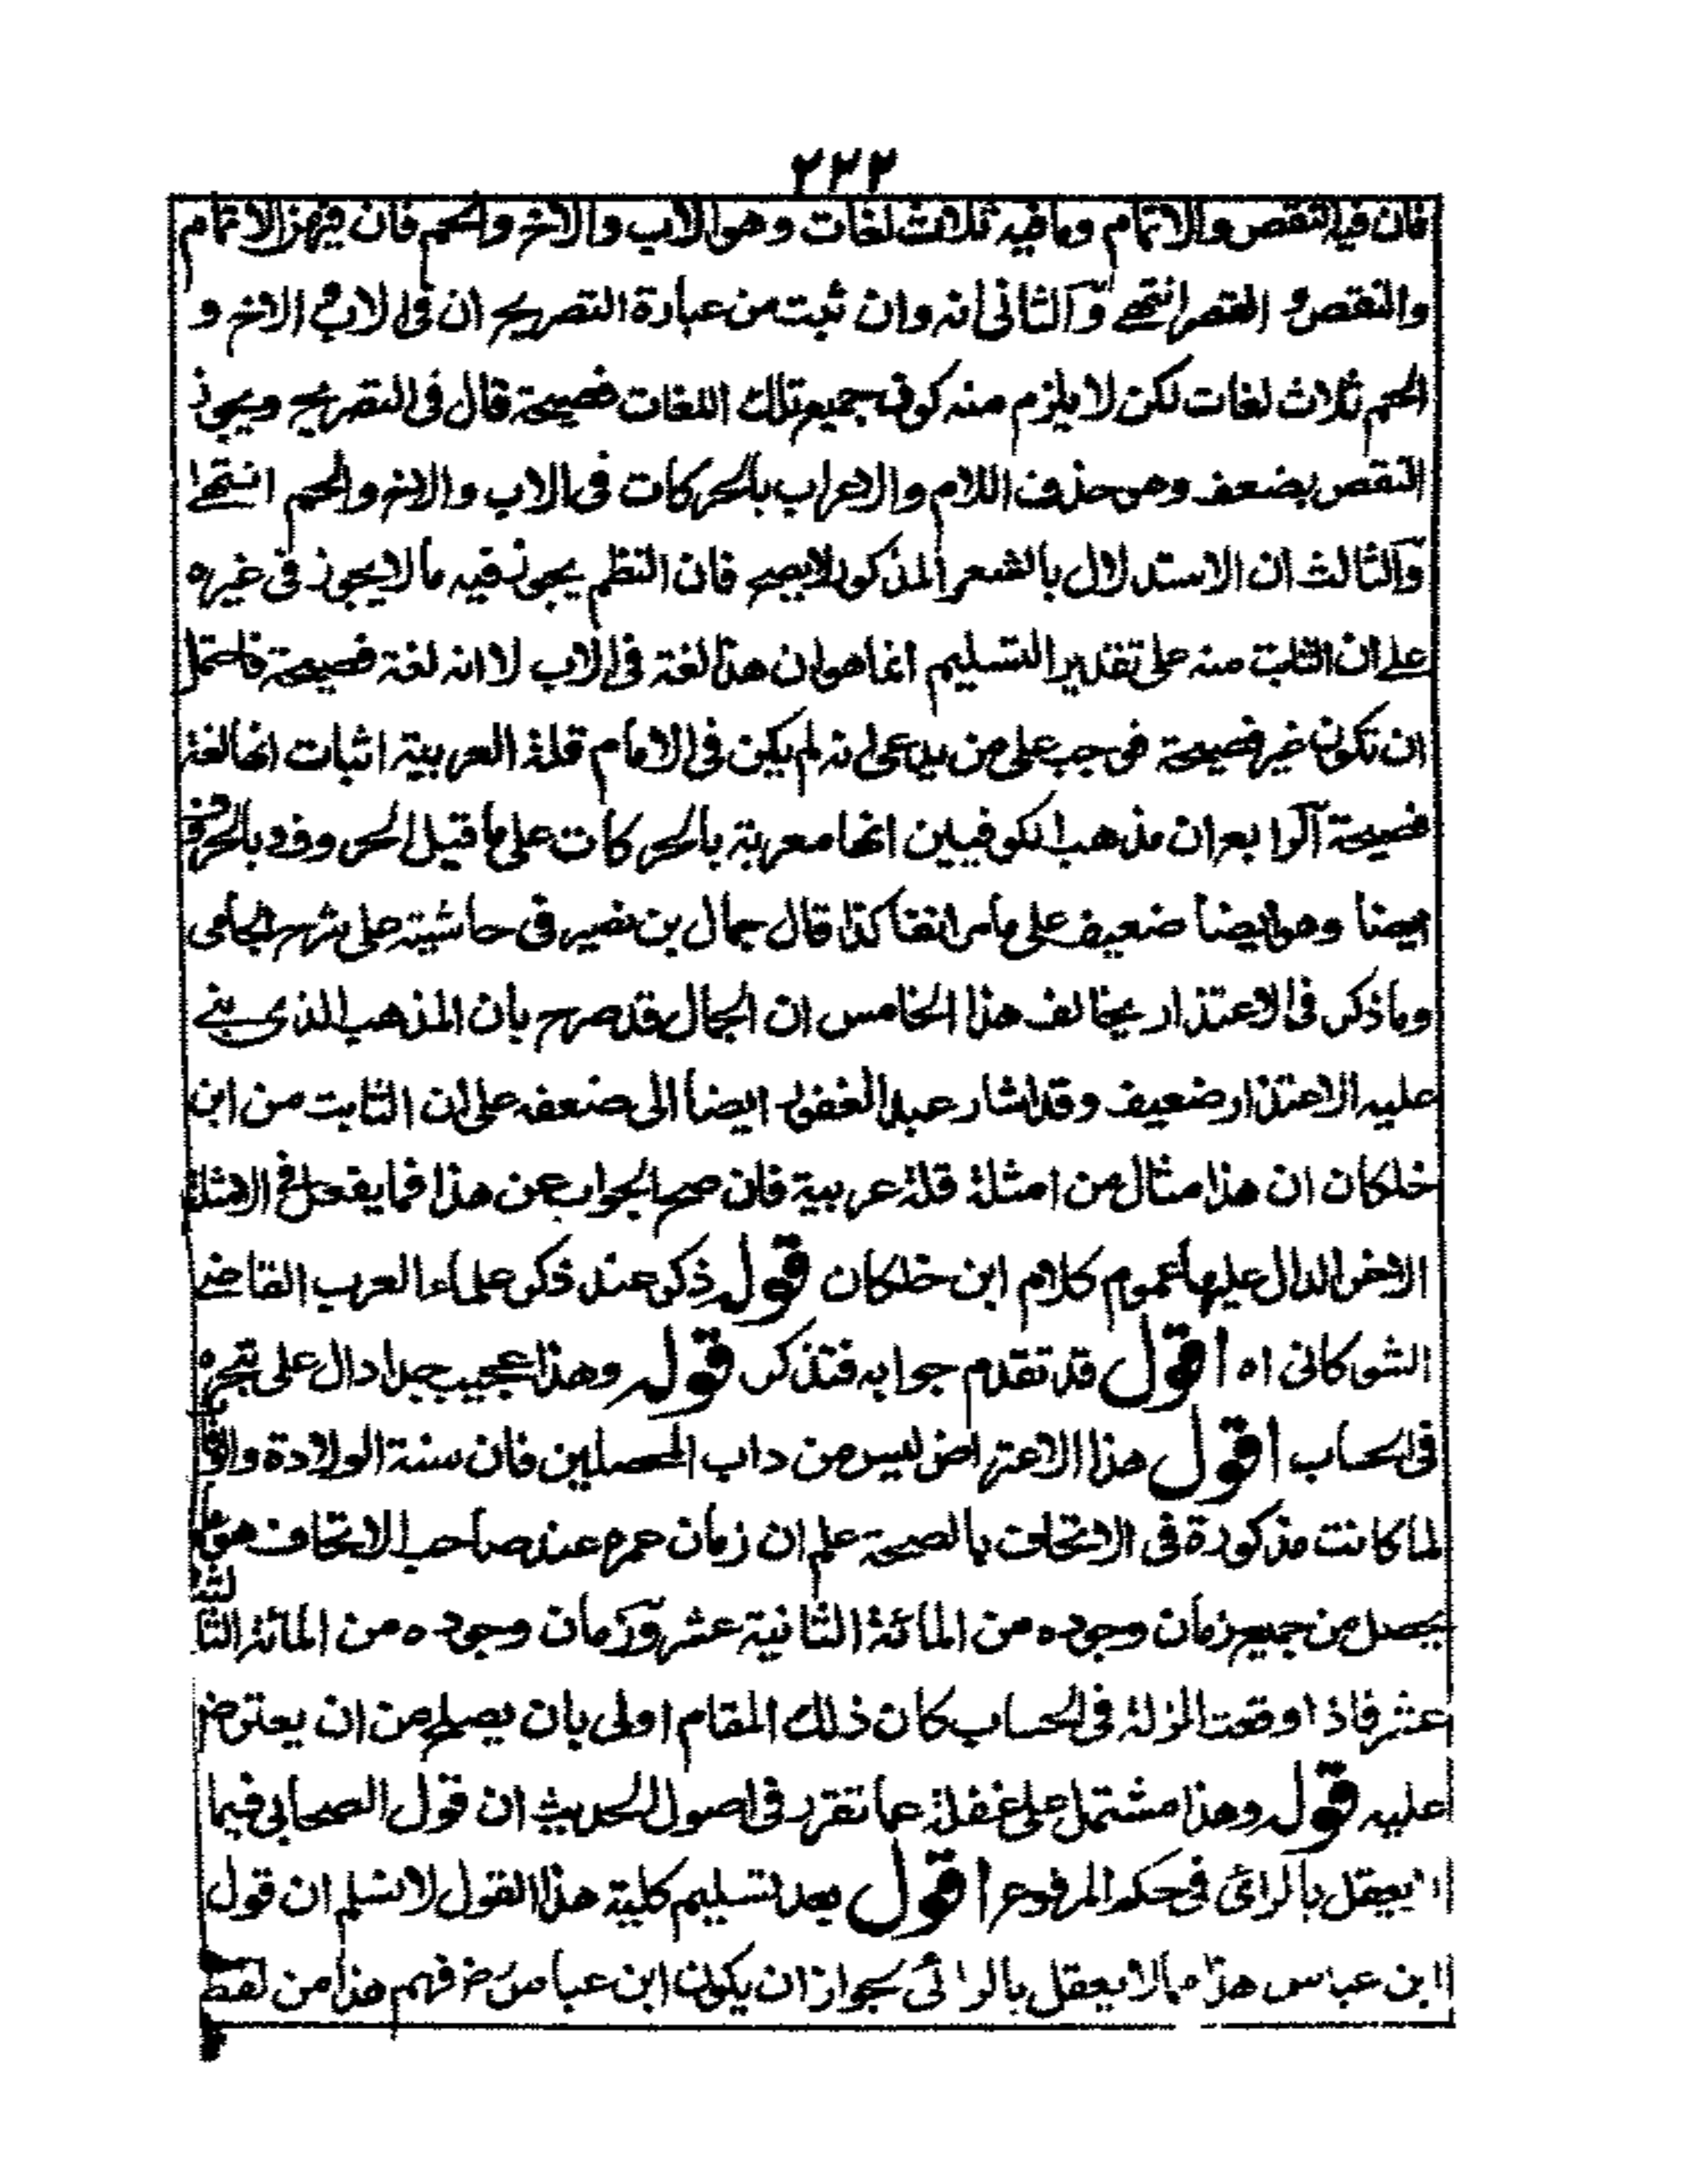 ٢٣٢
فان فيه النقص والاتمام وما فيه ثلاث لغات وهو الاب والاخ والحم فان فيهن الاتمام
والنقص والقصر انتهى والثانى انه وان ثبت من عبارة التصريح ان فى الاب والاخ و
الحم ثلاث لغات لكن لا يلزم منه كون جميع تلك اللغات فصيحة قال فى التصريح ويجوز
النقص بضعف وهو حذف اللام والاعراب بالحركات فى الاب والاخ والحم انتهى
والثالث ان الاستدلال بالشعر المذكور لا يصح فان النظم يجوز فيه ما لا يجوز فى غيره
على ان الثابت منه على تقدير التسليم انما هو ان هذا لغة فى الاب لا انه لغة فصيحة فاحتمل
ان تكون غير فصيحة فوجب على من يدعى انه لم يكن فى الامام قلة العربية اثبات انها لغة
فصيحة الرابع ان مذهب الكوفيين انها معربة بالحركات على ما قيل الحروف وبالحروف
ايضا وهو ايضا ضعيف على ما مر انفا كذا قال جمال بن نصير فى حاشيته على شرح الجامى
وما ذكر فى الاعتذار يخالف هذا الخامس ان الجمال قد صرح بان المذهب الذى بنى
عليه الاعتذار ضعيف وقد اشار عبد الغفور ايضا الى ضعفه على ان الثابت من ابن
خلكان ان هذا مثال من امثلة قلة عربية فان صح الجواب عن هذا فما يفعل فى الامثلة
الاخر الدال عليها عموم كلام ابن خلكان قوله ذكر عند ذكر علماء العرب القاضى
الشوكانى اه اقول قد تقدم جوابه فتذكر قوله وهذا عجيب جدا دال على تبحره
فى الحساب اقول هذا الاعتراض ليس من داب المحصلين فان سنة الولادة والوفاة
لما كانت مذكورة فى الاتحاف بالصحة علم ان زمان عمره عند صاحب الاتحاف هو ما
يحصل من جميع زمان وجوده من المائة الثانية عشر وزمان وجوده من المائة الثالثة
عشر فاذا وقعت المزلة فى الحساب كان ذلك المقام اولى بان يصلح من ان يعترض
عليه قوله وهذا مشتمل على غفلة عما تقرر فى اصول الحديث ان قول الصحابى فيما
لا يعقل بالرائى فى حكم المرفوع اقول بعد تسليم كلية هذا القول لا نسلم ان قول
ابن عباس هذا مما لا يعقل بالرائى لجواز ان يكون ابن عباس رض فهم هذا من لفظ